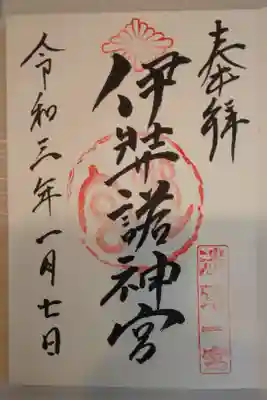 奉拝
淡路一宮
伊弉諾神宮
令和三年一月七日